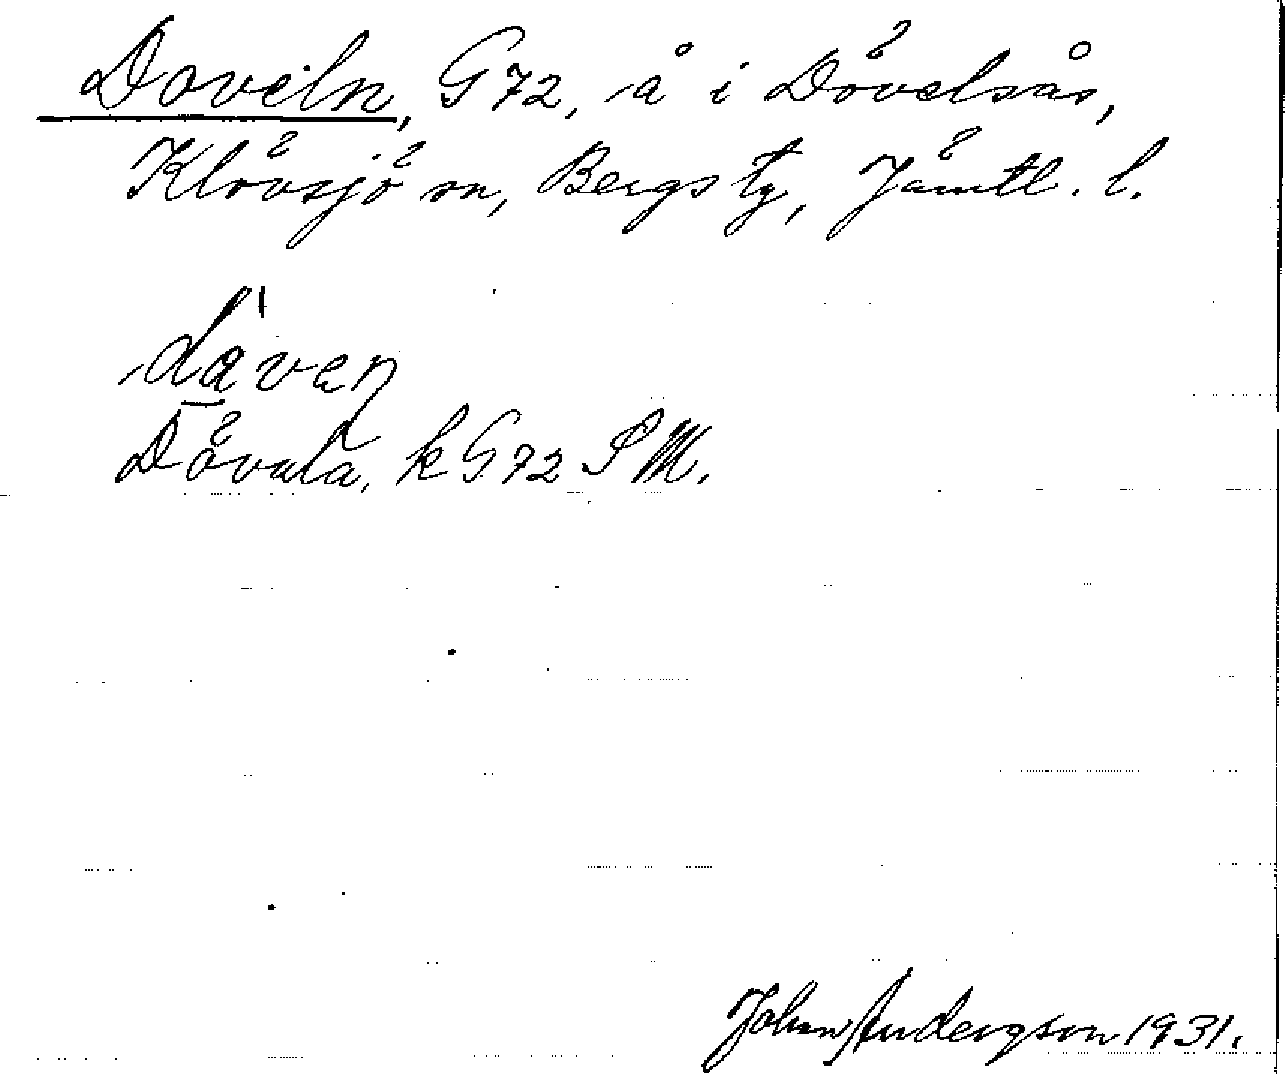 Doveln, G72, å i Dövelsås,
Klövsjö sn, Bergs tg, Jämtl. l.
Dövala, k G72 SM.
Johan Andersson 1931.